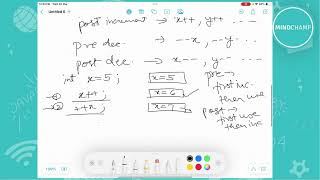 Untitled 5
MINDCHAMP
post increment → x++, y++ ...
pre dec. → --x, --y...
post dec → x--, y-- ...
int x=5; x=5
① x++; x=6
② ++x; x=7
pre →
first inc.
then use
post →
first use
then inc